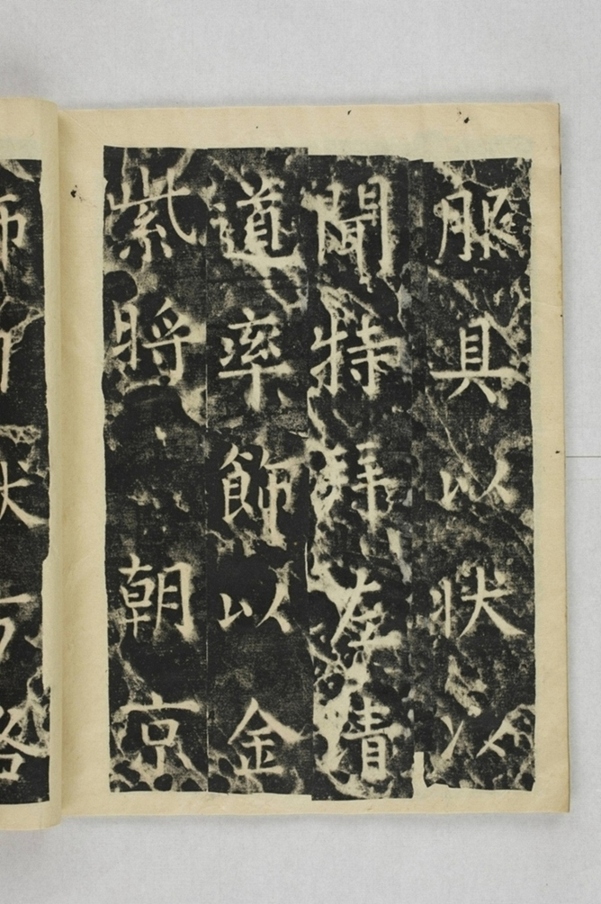 服具以状以
聞特拜左清
道率飾以金
紫將朝京